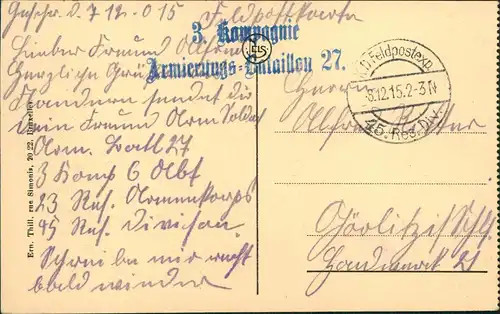 Geschr. d. 7 12. 015 Feldpostkarte
3. Kompagnie
Armierungs-Bataillon 27.
ELS
Lieber Freund Alfred
Herzliche Grüße
Flandern sendet dir
Dein Freund Arm. Soldat
Arm. Batl 27
3 Komp 6 Abt
23 Res. Armeekorps
45 Res. Division.
Schreibe mir recht
bald wieder
Ern. Thill, rue Simonis, 20 22, Bruxelles
K.D. Feldpostexp.
8.12.15. 2-3 N
45. Res. Div.
Herrn
Alfred
Görlitz i/Schl.
21